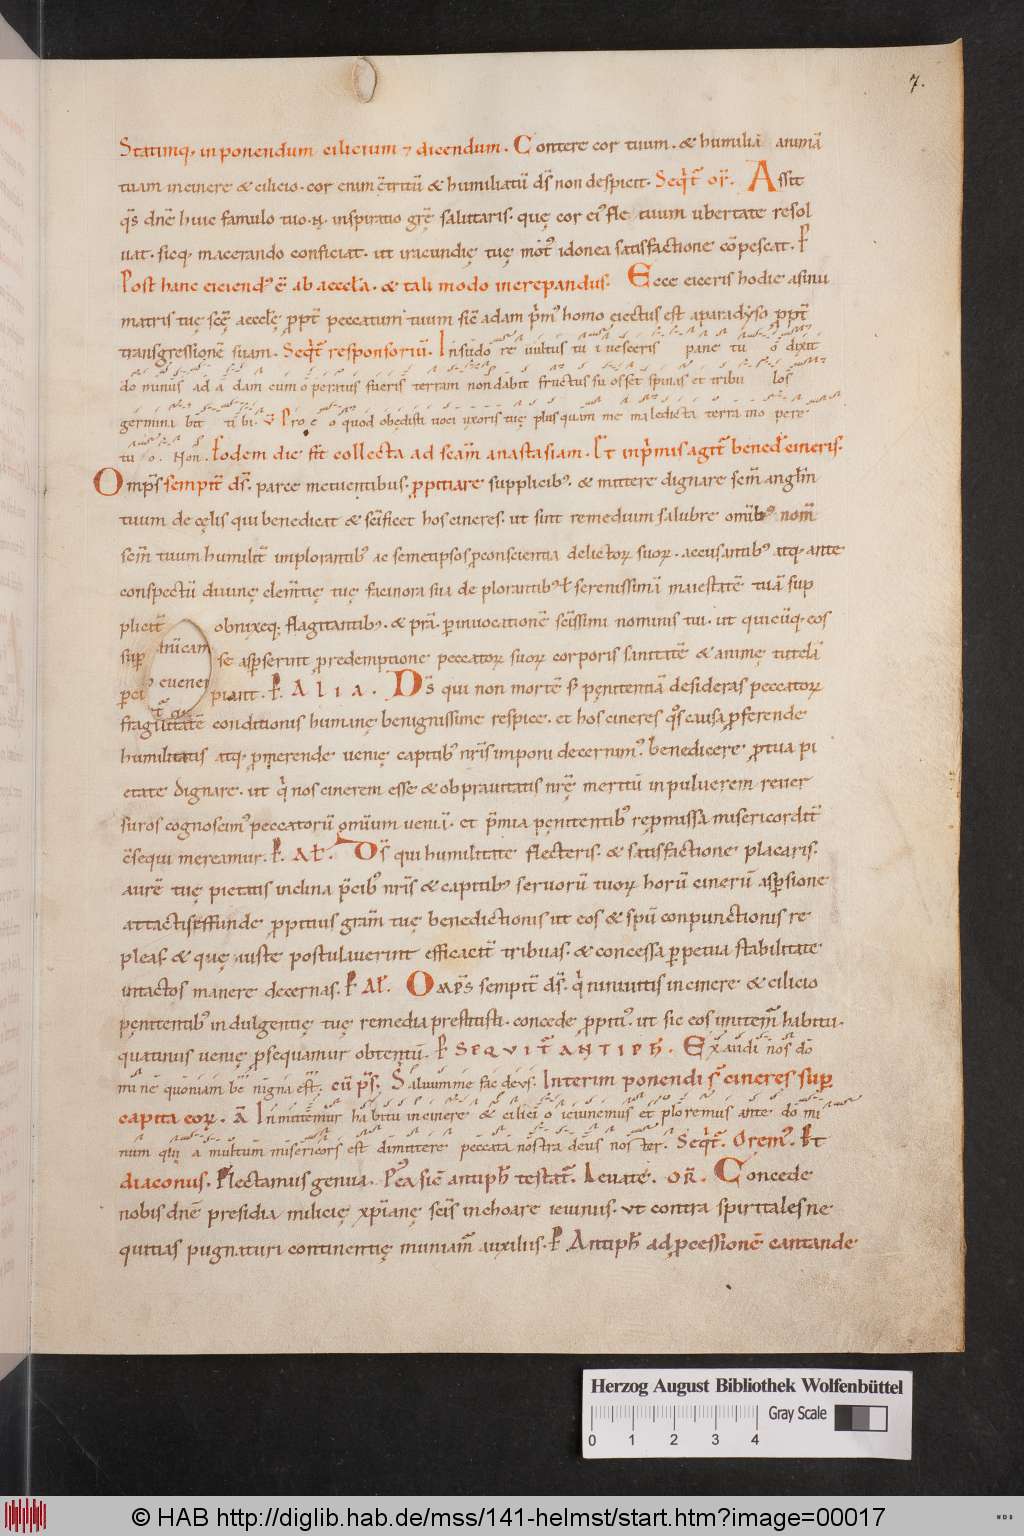 7.
Statimq; inponendum cilicium ⁊ dicendum. Contere cor tuum. & humiliā animā
tuam in cinere & cilicio. cor enim c̄tritū & humiliatū d̄s non despicit. Seq̄t̄ or̄. Assit
q̄s dn̄e huic famulo tuo .N. inspiratio gr̄ę salutaris. quę cor ei᾽ fletuum ubertate resol
uat. sicq; macerando conficiat. ut iracundię tuę mot᾽ idonea satisfactione cōpescat. P
Post hanc eiciend᾽ ē ab aeccl̄a. & tali modo increpandus. Ecce eiceris hodie a sinu
matris tuę sc̄ę aeccl̄ę ꝓpt̄ peccatum tuum sic̄ adam p̄m᾽ homo eiectus est a paradẏso ꝓpt̄
transgressionē suam. Seq̄t̄ responsoriū. In sudo re uultus tu i uesceris pane tu o dixit
do minus ad a dam cum o peratus fueris terram non dabit fructus su os set spinas et tribu los
germina bit ti bi. V Pro e o quod obędisti uoci uxoris tuę plus quam me maledicta terra in o pere
tu o. Non. Eodem die fit collecta ad scam̄ anastasiam. Et inp̄mis agit̄ bened̄ cineris.
Omp̄s sempit̄ d̄s. parce metuentibus. ꝓpitiare supplicib᾽. & mittere dignare sc̄m angl̄m
tuum de cęlis qui benedicat & sc̄ificet hos cineres. ut sint remedium salubre omib᾽ nom̄
sc̄m tuum humilit̄ implorantib᾽ ac semetipsos ꝓ conscientia delictoꝝ suoꝝ. accusantib᾽ atq; ante
conspectū diuinę clem̄tię tuę facinora sua deplorantib᾽ ł serenissimā maiestatē tuā sup
plicit̄ obnixeq; flagitantib᾽. & p̄ra. ꝑ inuocationē sc̄issimi nominis tui. ut quicūq; eos
suꝑ se asꝑserint ꝓ redemptione peccatoꝝ suoꝝ corporis sanitatē & animę tutelā
ꝑcipiant. P. Alia. D̄s qui non mortē s̄ pęnitentiā desideras peccatoꝝ
fragilitatē conditionis humanę benignissime respice. et hos cineres q᾽s causa ꝓferende
humilitatis atq; ꝓmerende uenię capitib᾽ nr̄is imponi decernim᾽. benedicere ꝓ tua pi
etate dignare. ut q̇ nos cinerem esse & ob prauitatis nr̄ę meritū in puluerem reuer
suros cognoscim᾽ peccatorū omium ueniā. et p̄mia pęnitentib᾽ repmissa misericordit̄
c̄sequi mereamur. P. Al̄. D̄s qui humilitate flecteris. & satisfactione placaris.
aurē tuę pietatis inclina p̄cib᾽ nr̄is & capitib᾽ seruorū tuoꝝ horū cinerū asꝑsione
attactis effunde ꝓpitius gram̄ tuę benedictionis ut eos & sp̄u conpunctionis re
pleas & quę iuste postulauerint efficacit̄ tribuas. & concessa ꝑpetua stabilitate
intactos manere decernas. P. Al̄. Omp̄s sempit̄ d̄s. q̇ niniuitis in cinere & cilicio
pęnitentib᾽ indulgentię tuę remedia prestitisti. concede ꝓpiti᾽. ut sic eos imitem̄ habitu.
quatinus uenię ꝓsequamur obtentū. P Sequit̄ antiph̄. Exaudi nos do
mi ne quoniam be nigna est. cū ps̄. Saluum me fac deus. Interim ponendi s̄ cineres suꝑ
capita eoꝝ. ā Inmutemur habitu in cinere & cilici o ieiunemus et ploremus ante do mi
num qui a multum misericors est dimittere peccata nostra deus nos ter. Seq̄t̄. Orem᾽. Et
diaconus. Flectamus genua. Pea sic̄ antiph̄ testat̄. Leuate. or̄. Concede
nobis dn̄e presidia milicię xp̄ianę sc̄is inchoare ieiuniis. ut contra spiritales ne
quitias pugnaturi continentię muniam̄ auxiliis. P Antiph̄ ad ꝓcessionē cantande
Herzog August Bibliothek Wolfenbüttel
Gray Scale
0 1 2 3 4
© HAB http://diglib.hab.de/mss/141-helmst/start.htm?image=00017